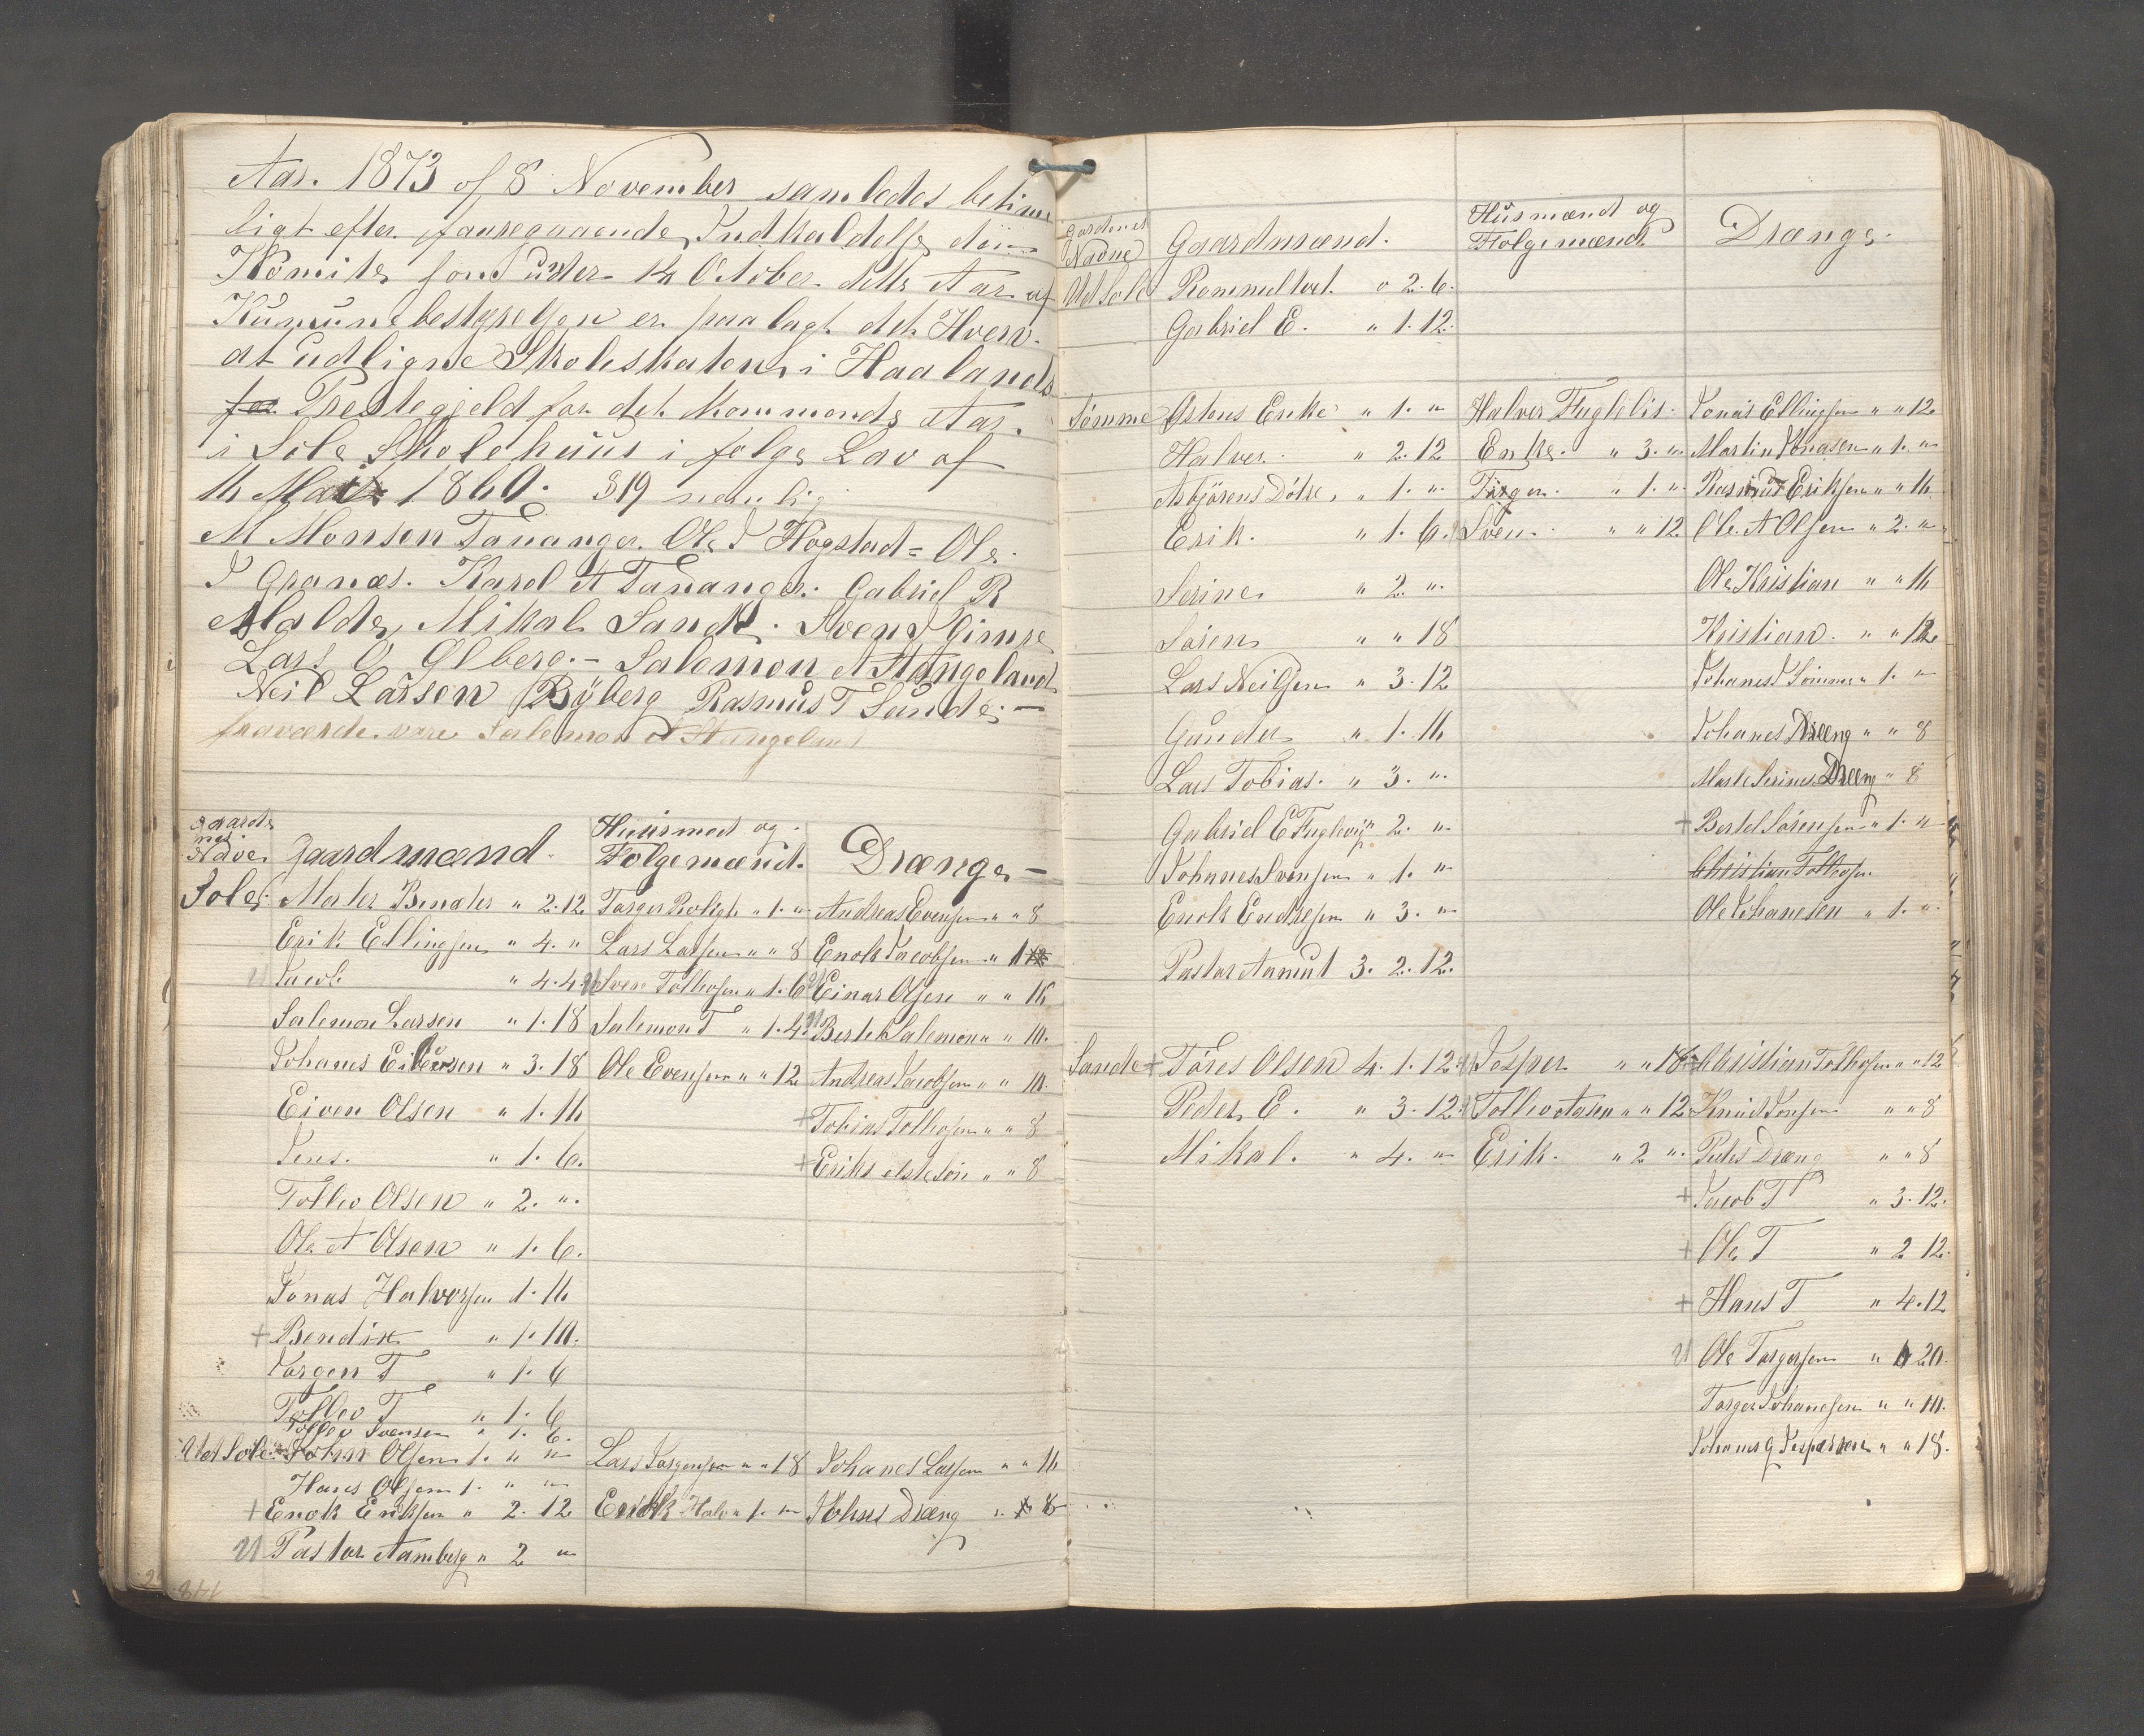 Aar. 1873 of 8 November samledes betime
ligt efter faaregaaende Indkaldelse den
Komite som under 14 October dette Aar af
Kumunebestyrelsen er paalagt det Hverv.
at udligne Skoleskaten i Haalands
for Prestegjeld for det kommende Aar.
i Sole Skolehuus i følge Lav af
16 Mai 1860. §19 nemlig
M Monsen Tananger. Ole I Hogstad = Ole.
I Grannæs. Karel A Tananger. Gabriel R
Malde, Mikal Sande. Sven I Gimre
Lars O Olberg. - Salomon A Stangeland
Neil Larsen Ryberg Rasmus T Sunde. -
fraværende vare Salemon A Stangeland
Gaarde
nes
Nave
gaardmænd.
Huusmed og.
Folgemænd.
Drænge -
Sole. Marte Bendts " 2.12. Targer Roligh " 1. " Andreas Evensen " " 8
Erik Ellingsen " 4. " Lars Larsen " " 8 Enok Jacobsen " 1
U Jacob " 4.4. Sven Tollevsen " 1.6 U Einar Olsen " " 16
Salemon Larsen " 1.18 Salemon T " 1.4 U Bertel Salemon " " 10.
Johanes Eilersen " 3.18 Ole Evensen " " 12 Andreas Jacobsen " " 10.
Eiven Olsen " 1.16 + Tobias Tollevsen " " 8
Jens. " 1.6. + Eriks elste Sön " " 8
Tollev Olsen " 2. ".
Ole A Olsen " 1.6.
Jonas Halvorsen 1.16
+ Bendix " 1.10.
Jorgen T " 1.6
Tollev T " 1.6
Tollev Svensen " 1.6.
Ud Sole. John Olsen 1. " " Lars Jorgensen " " 18 Johanes Larsen " " 16
Hans Olsen 1. " "
+ Enok Eriksen " 2.12 Enok Halv " 1. " Johns Dræng " " 8
U Pastor Aamberg " 2 "
gardenes
Navne
Gaardmænd.
Husmænd og
Folgemænd.
Drænge.
Ud Sole Rommeltvet. " 2.6.
Gabriel E. " 1.12.
Sömme Ostens Enke " 1. " Halvor Fuglelis. Jonas Ellingsen " " 12
Halvor. " 2.12 Enke. " 3. " Martin Jonasen " 1. "
Asbjörens Döttre, " 1. " Targer. " 1. " Rasmus Eriksen " " 16
Erik. " 1.6. Sven. " " 12. Ole. A Olsen " 2. "
Serine " 2. ". Ole Kristian " " 16
Sören " " 18 Kristian. " " 12.
Lars Neilsen " 3.12 Johanes I Sömme " 1. "
Gunder " 1.16 Johanes Dræng " " 8
Lars Tobias. " 3. ". Marte Serines Dræng " 8
Gabriel E Fuglevig " 2. ". + Bertel Sörensen " 1. "
Johanes Svensen " 1. " Christian Tollevsen
Enok Endresen " 3. " Ole Johanesen " 1. ".
Pastor Aamut 3. 2.12.
Sande + Töres Olsen 4.1.12. Jesper " " 18 Christian Tollevsen " " 12
Peder E. " 3.12. Tollev Aasen " " 12 Knud Jonsen " " 8
Mikal. " 4. " Erik. " 2 ". Peders Dræng " " 8
+ Jacob T " 3.12.
+ Ole T " 2 12.
+ Hans T " 4.12
U Ole Torgersen " 1 20.
Torger Johanesen " " 10.
Johanes G Jespersen " " 18.